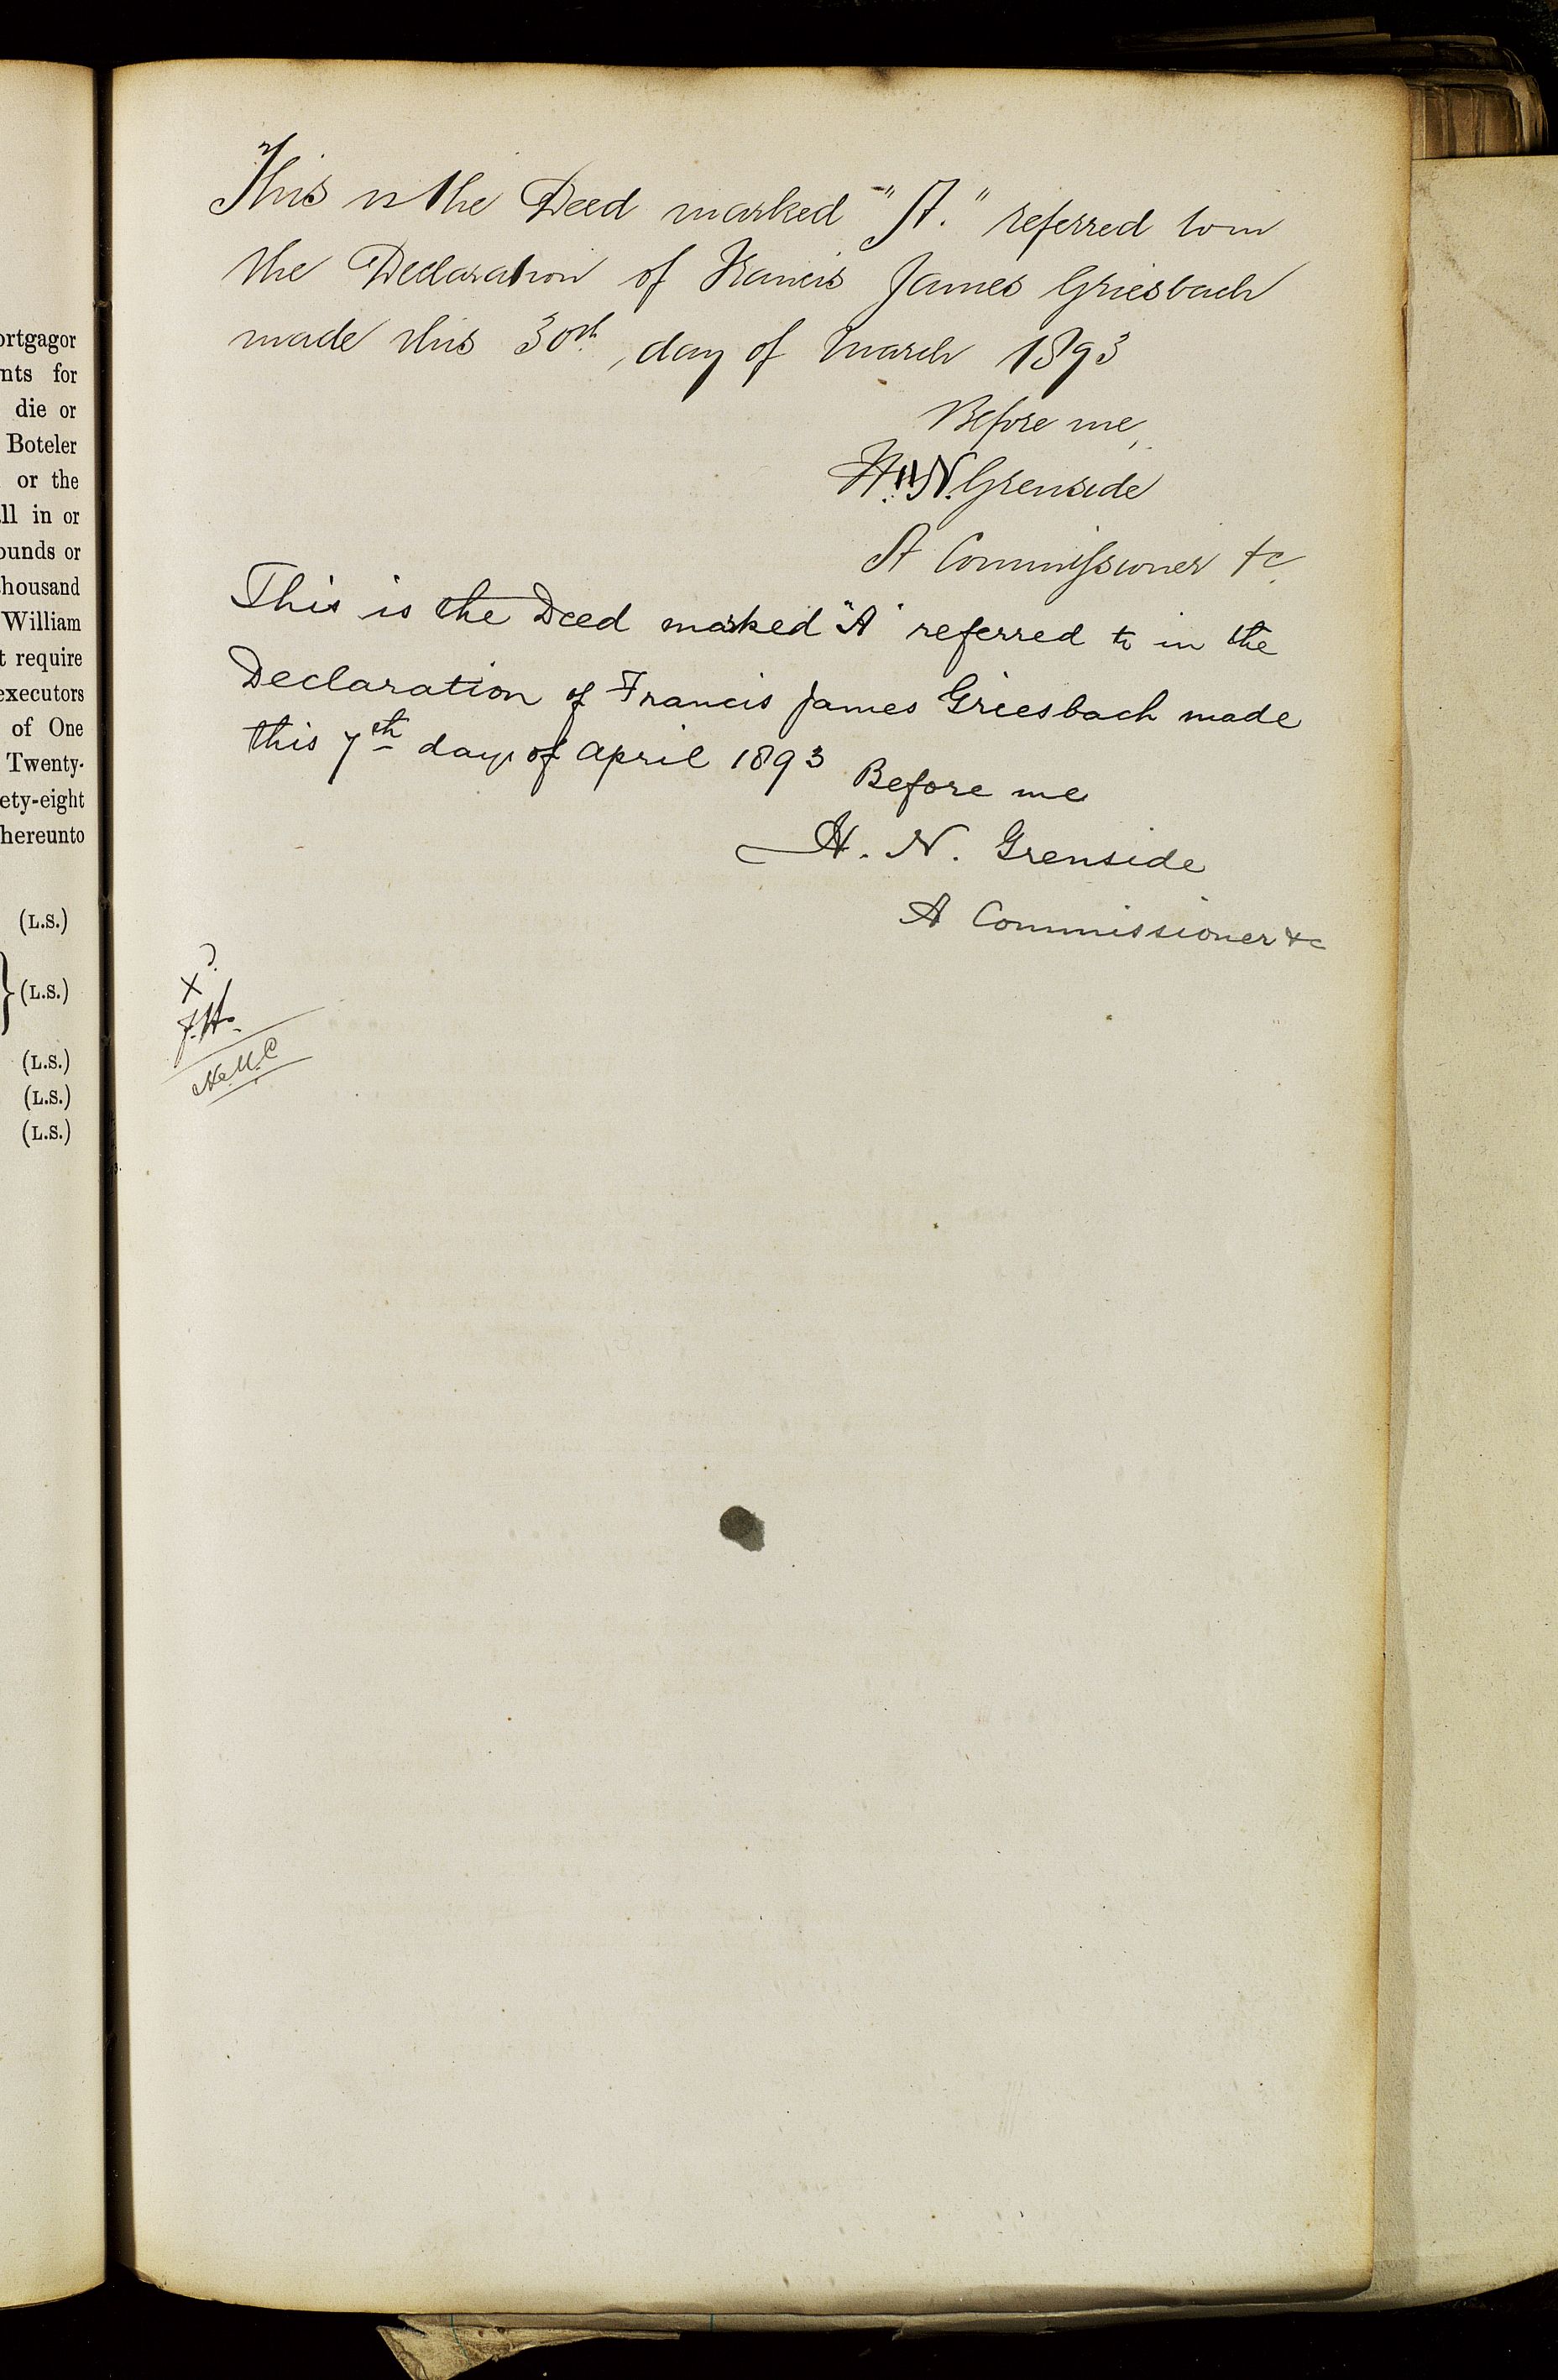 ortgagor
nts for
die or
Boteler
or the
ll in or
ounds or
thousand
William
t require
executors
of One
Twenty-
ety-eight
hereunto
(L.S.)
(L.S.)
(L.S.)
(L.S.)
(L.S.)
This is the Deed marked "A." referred to in
the Declaration of Francis James Griesbach
made this 30th day of March 1893
Before me,
H. N. Grenside
A Commissioner &c
This is the Deed marked "A" referred to in the
Declaration of Francis James Griesbach made
this 7th day of April 1893
Before me
H. N. Grenside
A Commissioner &c
X
F.H.